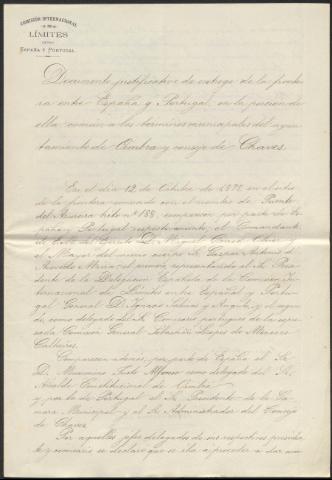 COMISIÓN INTERNACIONAL
DE
LÍMITES
ENTRE
ESPAÑA Y PORTUGAL
Documento justificativo de entrega de la fronte
ra entre España y Portugal, en la porción de
ella común a los términos municipales del ayun
tamiento de Oimbra y consejo de Chaves.
En el día 12 de Octubre de en el sitio
de la frontera conocido con el nombre de Puente
del hito nº 188, por parte de Es
paña y Portugal respectivamente, el Comandante
de del Ejército D. Miguel
el Mayor del mismo cuerpo D. Gaspar Antonio d'
Azevedo el representando al Sr. Presi
dente de la Delegacion Española de la Comisión In
ternacional de Límites entre España y Portu
gal General D. Ignacio y y el segun
do como delegado del Sr. Comisario portugues de la expre
sada Comisión General Sebastián Lopes de
Calheiros.
Comparecen además, por parte de España el Sr.
D. Alfonso como delegado del Sr.
Alcalde Constitucional de Oimbra
y por la de Portugal el Sr. Presidente de la Cá
mara Municipal y el Sr. Administrador del Consejo
de Chaves.
Por aquellos jefes delegados de sus respectivos presiden
te y comisario se declaró que se iba a proceder a dar